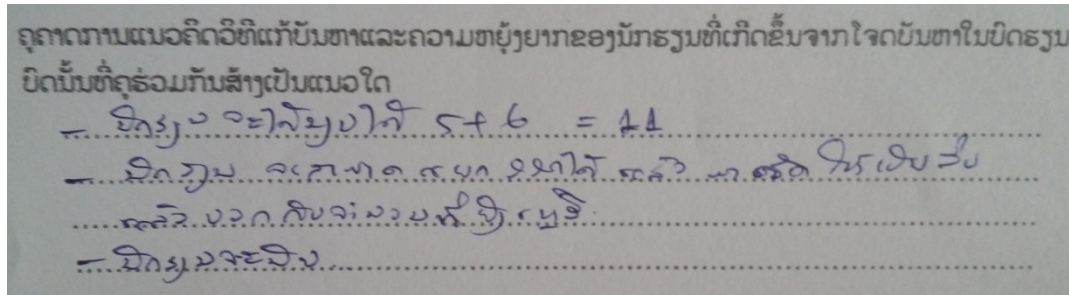 ຄູຄາດການແນວຄິດວິທີແກ້ບັນຫາແລະຄວາມຫຍຸ້ງຍາກຂອງນັກຮຽນທີ່ເກີດຂຶ້ນຈາກໂຈດບັນຫາໃນບົດຮຽນ
ບົດນັ້ນທີ່ຄູຮ່ວມກັນສ້າງເປັນແນວໃດ
- ນັກຮຽນ ຈະໄດ້ 5+6 = 11
- ນັກຮຽນ ຈະສາມາດ ແຍກ ໄດ້ ແລ້ວ ໃຫ້ເປັນສິບ
ແລ້ວບວກກັບຈຳນວນທີ່ຍັງເຫຼືອ
- ນັກຮຽນຈະ